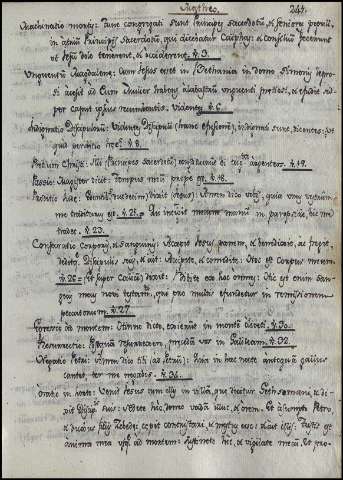 Matheo. 241.
Machinatio mortis: Tunc congregati sunt Principes Sacerdotum, & seniores populi,
in atrium Principis Sacerdotum, qui dicebatur Caiphas: & consilium fecerunt
ut Jesum dolo tenerent, & occiderent. ℣. 3.
Unguentum Magdalenę: Cum Jesus esset in Bethania in domo Simonis lepro-
si accessit ad Eum Mulier habens alabastrum unguenti pretiosi, & effudit su-
per caput ipsius recumbentis. Videntes ℣. 6.
Indignatio Discipulorum: Videntes Discipuli indignati sunt, dicentes: ut
quid perditio hęc? ℣. 8.
Pretium Christi: constituerunt ei argenteos. ℣. 15.
Passio: Magister dicit: Tempus meum prope est. ℣. 18.
Proditio: (Jesus): Amen dico vobis, quia unus vestrum
me traditurus est. ℣. 21. Qui intingit mecum manum in paropside, hic me
tradet. ℣. 23.
Consecratio Corporis, & Sanguinis: Accepit Jesus panem, & benedixit, ac fregit
deditq. Discipulis suis, & ait: Accipite, & comedite: Hoc est Corpus meum
℣. 26. Et super Calicem dixit: Bibite ex hoc omnes: Hic est enim San-
guis meus novi testamti, qui pro multis effundetur in remissionem
peccatorum. ℣. 27.
Egressio ad montem: Hymno dicto, exierunt in montem Oliveti. ℣. 30.
Resurrectio: Postquam resurrexero, pręcedam vos in Galilęam. ℣. 32.
Negatio Petri: Amen dico tibi (ait Petro): Quia in hac nocte antequam gallus
cantet, ter me negabis. ℣. 34.
Oratio in horto: Venit Jesus cum illis in villam, quę dicitur Gethsemani, & di-
xit Discipulis suis: Sedete hic, donec vadam illuc, & orem. Et assumpto Petro,
& duobus filijs Zebedęi cępit contristari, & męstus esse: & ait illis: Tristis est
anima mea usq. ad mortem: sustinete hic, & vigilate mecum. Et pro-